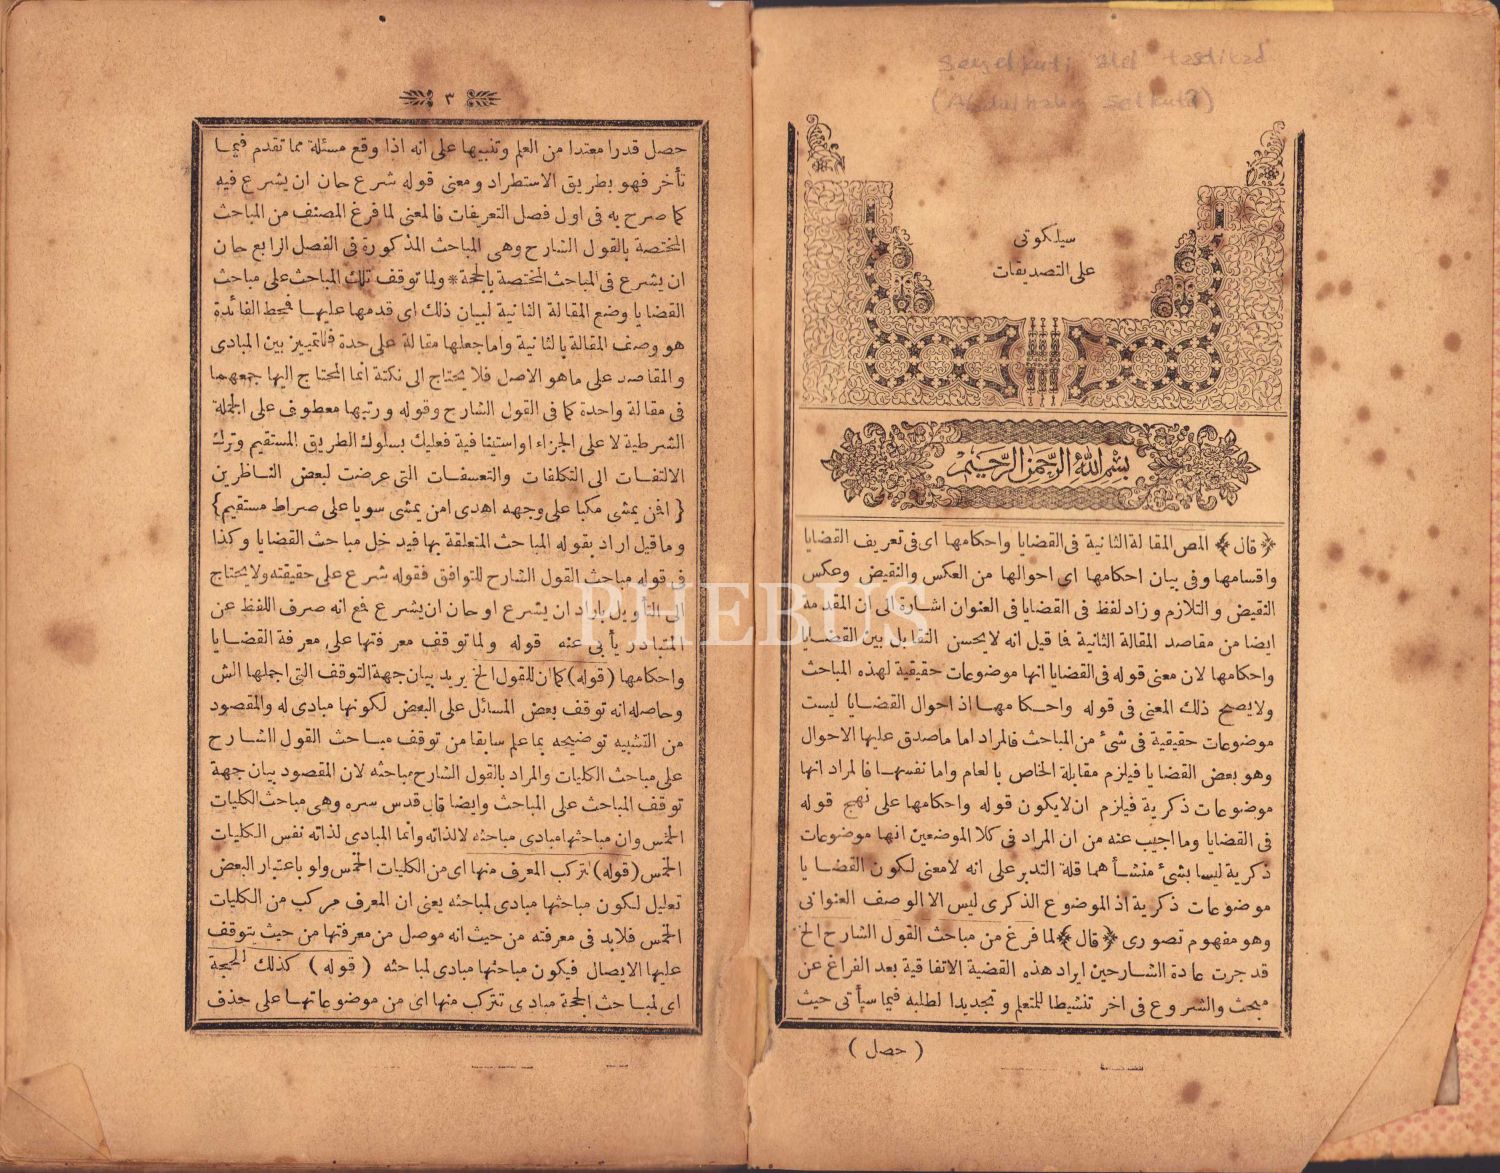 Seyelkuti alel tasdikad
(Abdulhakim Selkuti)
سيلكوتى
على التصديقات
بسم الله الرحمن الرحيم
﴿ قال ﴾ المص المقالة الثانية فى القضايا واحكامها اى فى تعريف القضايا
واقسامها وفى بيان احكامها اى احوالها من العكس والنقيض وعكس
النقيض والتلازم وزاد لفظ فى القضايا فى العنوان اشارة الى ان المقدمه
ايضا من مقاصد المقالة الثانية فما قيل انه لايحسن التقابل بين القضايا
واحكامها لان معنى قوله فى القضايا انها موضوعات حقيقية لهذه المباحث
ولايصح ذلك المعنى فى قوله واحكامها اذ احوال القضايا ليست
موضوعات حقيقية فى شئ من المباحث فالمراد اما ماصدق عليها الاحوال
وهو بعض القضايا فيلزم مقابلة الخاص بالعام واما نفسها فالمراد انها
موضوعات ذكرية فيلزم ان لايكون قوله واحكامها على نهج قوله
فى القضايا وما اجيب عنه من ان المراد فى كلا الموضعين انها موضوعات
ذكرية ليسا بشئ منشأهما قلة التدبر على انه لامعنى لكون القضايا
موضوعات ذكرية اذ الموضوع الذكرى ليس الا الوصف العنوانى
وهو مفهوم تصورى ﴿ قال ﴾ لما فرغ من مباحث القول الشارح الخ
قد جرت عادة الشارحين ايراد هذه القضية الاتفاقية بعد الفراغ عن
مبحث والشروع فى اخر تنشيطا للمتعلم وتجديدا لطلبه فيما سيأتى حيث
( حصل )
٣
حصل قدرا معتدا من العلم وتنبيها على انه اذا وقع مسئلة مما تقدم فيما
تأخر فهو بطريق الاستطراد ومعنى قوله شرع حان ان يشرع فيه
كما صرح به فى اول فصل التعريفات فالمعنى لما فرغ المصنف من المباحث
المختصة بالقول الشارح وهى المباحث المذكورة فى الفصل الرابع حان
ان يشرع فى المباحث المختصة بالحجة * ولما توقف تلك المباحث على مباحث
القضايا وضع المقالة الثانية لبيان ذلك اى قدمها عليها فمحط الفائدة
هو وصف المقالة بالثانية واما جعلها مقالة على حدة فللتمييز بين المبادى
والمقاصد على ماهو الاصل فلا يحتاج الى نكتة انما المحتاج اليها جمعهما
فى مقالة واحدة كما فى القول الشارح وقوله ورتبها معطوف على الجملة
الشرطية لا على الجزاء او استينافية فعليك بسلوك الطريق المستقيم وترك
الالتفات الى التكلفات والتعسفات التى عرضت لبعض الناظرين
{ افمن يمشى مكبا على وجهه اهدى امن يمشى سويا على صراط مستقيم }
وما قيل اراد بقوله المباحث المتعلقة بها فيدخل مباحث القضايا وكذا
فى قوله مباحث القول الشارح للتوافق فقوله شرع على حقيقته ولا يحتاج
الى التأويل باراد ان يشرع او حان ان يشرع فمع انه صرف اللفظ عن
المتبادر يأبى عنه قوله ولما توقف معرفتها على معرفة القضايا
واحكامها (قوله) كما ان للقول الخ يريد بيان جهة التوقف التى اجملها الش
وحاصله انه توقف بعض المسائل على البعض لكونها مبادى له والمقصود
من التشبيه توضيحه بما علم سابقا من توقف مباحث القول الشارح
على مباحث الكليات والمراد بالقول الشارح مباحثه لان المقصود بيان جهة
توقف المباحث على المباحث وايضا قال قدس سره وهى مباحث الكليات
الخمس وان مباحثها مبادى مباحثه لا لذاته وانما المبادى لذاته نفس الكليات
الخمس (قوله) لتركب المعرف منها اى من الكليات الخمس ولو باعتبار البعض
تعليل لكون مباحثها مبادى لمباحثه يعنى ان المعرف مركب من الكليات
الخمس فلابد فى معرفته من حيث انه موصل من معرفتها من حيث يتوقف
عليها الايصال فيكون مباحثها مبادى لمباحثه ( قوله ) كذلك الحجة
اى لمباحث الحجة مبادى تتركب منها اى من موضوعاتها على حذف
PHEBUS